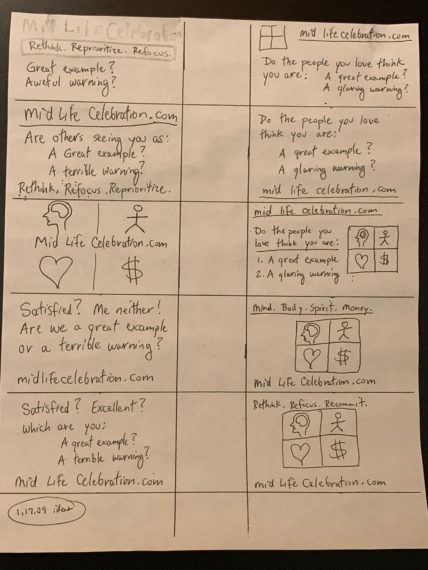 Mid Life Celebration
Rethink. Reprioritize. Refocus.
Great example?
Aweful warning?
Mid Life Celebration.com
Are others seeing you as:
A Great example?
A terrible warning?
Rethink. Refocus. Reprioritize.
Mid Life Celebration.com
$
Satisfied? Me neither!
Are we a great example
or a terrible warning?
midlifecelebration.com
Satisfied? Excellent?
Which are you:
A great example?
A terrible warning?
Mid Life Celebration.com
1.17.09 ideas
mid life celebration.com
Do the people you love think
you are:
A great example?
A glaring warning?
Do the people you love
think you are:
A great example?
A glaring warning?
mid life celebration.com
mid life celebration.com
Do the people you
love think you are:
1. A great example
2. A glaring warning
$
Mind. Body. Spirit. Money.
$
Mid Life Celebration.com
Rethink. Refocus. Recommit.
$
Mid Life Celebration.com